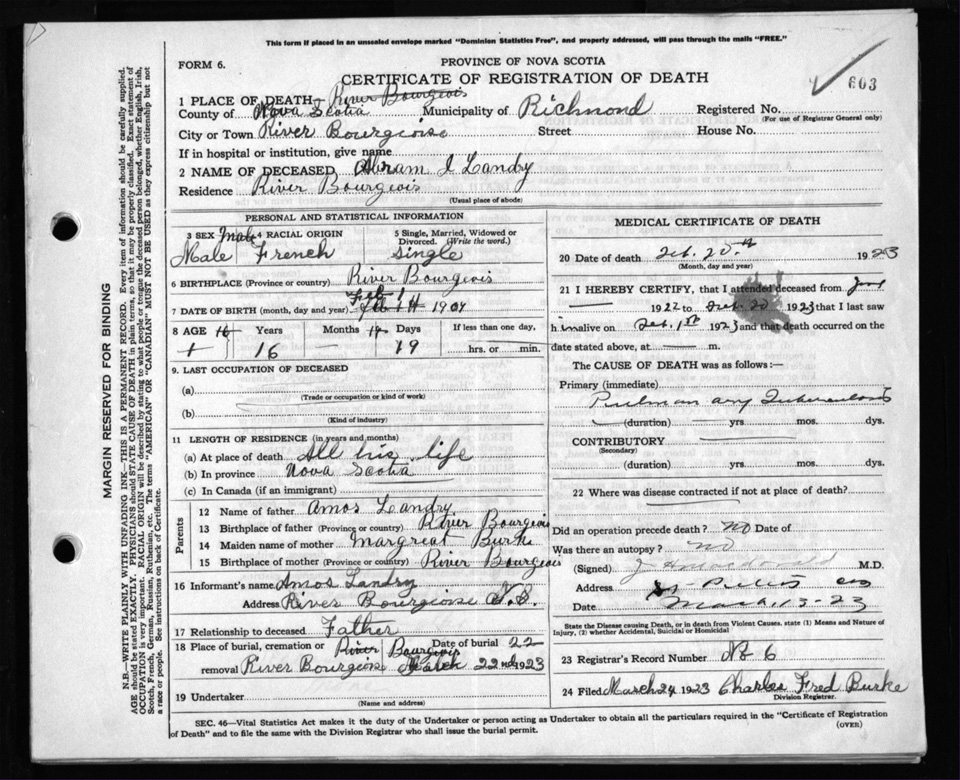 This form if placed in an unsealed envelope marked "Dominion Statistics Free", and properly addressed, will pass through the mails "FREE."
FORM 6.
PROVINCE OF NOVA SCOTIA
CERTIFICATE OF REGISTRATION OF DEATH
603
1 PLACE OF DEATH River Bourgeois
County of Nova Scotia Municipality of Richmond Registered No.
(For use of Registrar General only)
City or Town River Bourgeoise Street House No.
If in hospital or institution, give name
2 NAME OF DECEASED Abram J Landry
Residence River Bourgeois
(Usual place of abode)
PERSONAL AND STATISTICAL INFORMATION
3 SEX Male 4 RACIAL ORIGIN 5 Single, Married, Widowed or Divorced. (Write the word.)
Male French Single
6 BIRTHPLACE (Province or country) River Bourgeois
7 DATE OF BIRTH (month, day and year) Feb 1 1907
8 AGE 16 Years Months Days If less than one day,
1 16 — 19 hrs. or min.
9. LAST OCCUPATION OF DECEASED
(a)
(Trade or occupation or kind of work)
(b)
(Kind of industry)
11 LENGTH OF RESIDENCE (in years and months)
(a) At place of death All his life
(b) In province Nova Scotia
(c) In Canada (if an immigrant)
Parents
12 Name of father Amos Landry
13 Birthplace of father (Province or country) River Bourgeois
14 Maiden name of mother Margreat Burke
15 Birthplace of mother (Province or country) River Bourgeois
16 Informant's name Amos Landry
Address River Bourgeoise N.S.
17 Relationship to deceased Father
18 Place of burial, cremation or River Bourgeois Date of burial 22-
removal River Bourgeoise March 22nd 1923
19 Undertaker
(Name and address)
MEDICAL CERTIFICATE OF DEATH
20 Date of death Feb. 20th 1923
(Month, day and year)
21 I HEREBY CERTIFY, that I attended deceased from
1922 to 20 1923 that I last saw
him alive on 1st 1923 and that death occurred on the
date stated above, at — m.
The CAUSE OF DEATH was as follows:—
Primary (immediate)
Pulmonary Tuberculosis
(duration) yrs. mos. dys.
CONTRIBUTORY
(Secondary)
(duration) yrs. mos. dys.
22 Where was disease contracted if not at place of death?
Did an operation precede death? no Date of
Was there an autopsy? no
(Signed) M.D.
Address St. Peters
Date March 13-23
State the Disease causing Death, or in death from Violent Causes. state (1) Means and Nature of Injury, (2) whether Accidental, Suicidal or Homicidal
23 Registrar's Record Number No 6
24 Filed March 24 1923 Charles Fred Burke
Division Registrar.
SEC. 46—Vital Statistics Act makes it the duty of the Undertaker or person acting as Undertaker to obtain all the particulars required in the "Certificate of Registration
of Death" and to file the same with the Division Registrar who shall issue the burial permit.
(OVER)
MARGIN RESERVED FOR BINDING
N.B.—WRITE PLAINLY WITH UNFADING INK—THIS IS A PERMANENT RECORD. Every item of information should be carefully supplied.
AGE should be stated EXACTLY. PHYSICIANS should STATE CAUSE OF DEATH in plain terms, so that it may be properly classified. Exact statement of
OCCUPATION is very important. RACIAL ORIGIN will be described by stating to what people or tongue the deceased person belonged, whether English, Irish,
Scotch, French, German, Russian, Ruthenian, etc. The terms "AMERICAN" OR "CANADIAN" MUST NOT BE USED as they express citizenship but not
a race or people. See instructions on back of Certificate.